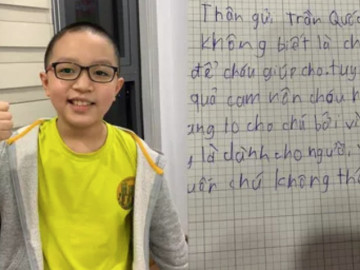 Thân gửi Trần Quố
không biết là ch
để cháu giúp cho. tuy
quả cam nên cháu h
ng lo cho chú bởi vì
là dành cho người
uốn chứ không th